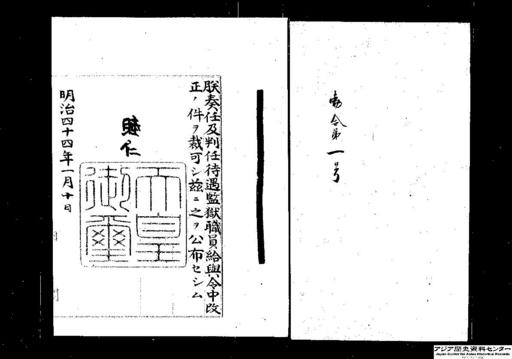 勅令第一号
朕奏任及判任待遇監獄職員給与令中改
正ノ件ヲ裁可シ茲ニ之ヲ公布セシム
睦仁
天皇
御璽
明治四十四年一月十日
アジア歴史資料センター
Japan Center for Asian Historical Records